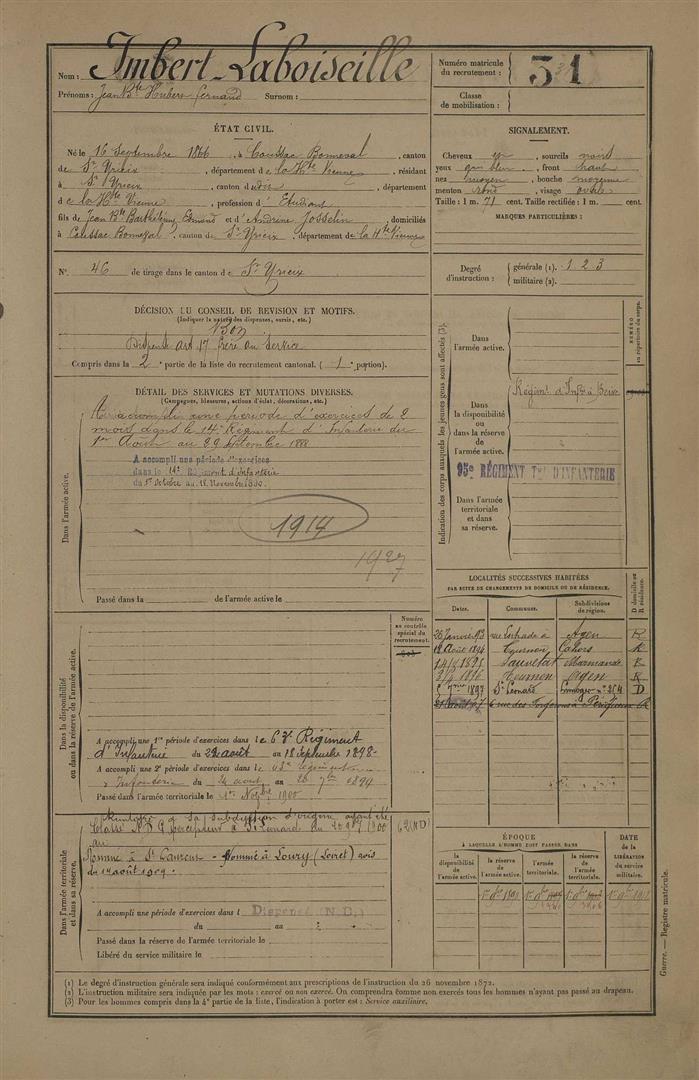 Nom : Imbert-Laboiseille
Prénoms : Jean Bte Hubert Fernand Surnom :
Numéro matricule du recrutement : 31
Classe de mobilisation :
ÉTAT CIVIL.
Né le 16 Septembre 1866, à Coussac Bonneval, canton
de St Yrieix, département de la Hte Vienne, résidant
à St Yrieix, canton du dit, département
de la Hte Vienne, profession d'Etudiant
fils de Jean Bte Barthélémy Edmond et d'Andrine Josselin, domiciliés
à Coussac Bonneval, canton de St Yrieix, département de la Hte Vienne
N° 46 de tirage dans le canton de St Yrieix
SIGNALEMENT.
Cheveux sourcils noirs
yeux gris bleu, front haut
nez moyen, bouche moyenne
menton rond, visage ovale
Taille : 1 m. 71 cent. Taille rectifiée : 1 m. cent.
MARQUES PARTICULIÈRES :
Degré d'instruction : générale (1). 1.2.3
militaire (2).
DÉCISION DU CONSEIL DE REVISION ET MOTIFS.
(Indiquer la nature des dispenses, sursis, etc.)
Bon
Dispensé art 17 frère au service
Compris dans la 2e partie de la liste du recrutement cantonal. (1e portion).
DÉTAIL DES SERVICES ET MUTATIONS DIVERSES.
(Campagnes, blessures, actions d'éclat, décorations, etc.)
Dans l'armée active.
A accompli une période d'exercices de 2
mois dans le 14e Régiment d'Infanterie du
1er Août au 29 Septembre 1888
A accompli une période d'exercices
dans le 14e Régiment d'Infanterie
du 1er Octobre au 18 Novembre 1890.
1914
1927
Passé dans la de l'armée active le
Indication des corps auxquels les jeunes gens sont affectés (3).
NUMÉRO au répertoire du corps.
Dans l'armée active.
Dans la disponibilité ou dans la réserve de l'armée active.
Régimt d'Infie à Brive
95e RÉGIMENT Tal D'INFANTERIE
Dans l'armée territoriale et dans sa réserve.
LOCALITÉS SUCCESSIVES HABITÉES
PAR SUITE DE CHANGEMENTS DE DOMICILE OU DE RÉSIDENCE.
Dates. Communes. Subdivisions de région. D domicile ou R résidence.
26 Janvier 93 Agen R
Août 1894 Tournon Cahors R
1895 Sauvetat Marmande R
1896 Tournon Agen R
5 7bre 1897 St Léonard Limoges n° 254 D
Périgueux R
Numéro au contrôle spécial du recrutement.
Dans la disponibilité ou dans la réserve de l'armée active.
A accompli une 1re période d'exercices dans le 63e Régiment
d'Infanterie du 22 août au 18 septembre 1898
A accompli une 2e période d'exercices dans le 63e régiment
d'Infanterie du 24 août au 20 7bre 1894
Passé dans l'armée territoriale le 1er Novbre 1900
Dans l'armée territoriale et dans sa réserve.
de sa subdivision d'origine ayant été
percepteur à St Léonard du 1900
au
Nommé à St Laurent - Nommé à Loury (Loiret) avis
du 14 août 1909.
A accompli une période d'exercices dans l Dispensé (N.D.)
du au
Passé dans la réserve de l'armée territoriale le
Libéré du service militaire le
ÉPOQUE
À LAQUELLE L'HOMME DOIT PASSER DANS
la disponibilité de l'armée active. la réserve de l'armée active. l'armée territoriale. la réserve de l'armée territoriale.
DATE de la LIBÉRATION du service militaire.
Guerre. — Registre matricule.
(1) Le degré d'instruction générale sera indiqué conformément aux prescriptions de l'instruction du 26 novembre 1872.
(2) L'instruction militaire sera indiquée par les mots : exercé ou non exercé. On comprendra comme non exercés tous les hommes n'ayant pas passé au drapeau.
(3) Pour les hommes compris dans la 4e partie de la liste, l'indication à porter est : Service auxiliaire.